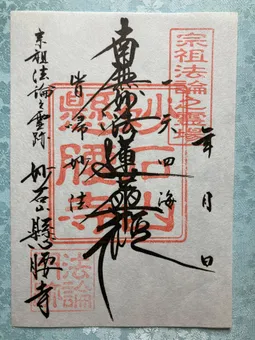 宗祖法論之霊場
年月日
一天四海
南無妙法蓮華経
皆帰妙法
宗祖法論之霊跡
妙石山懸腰寺
妙石山
懸腰寺
法論